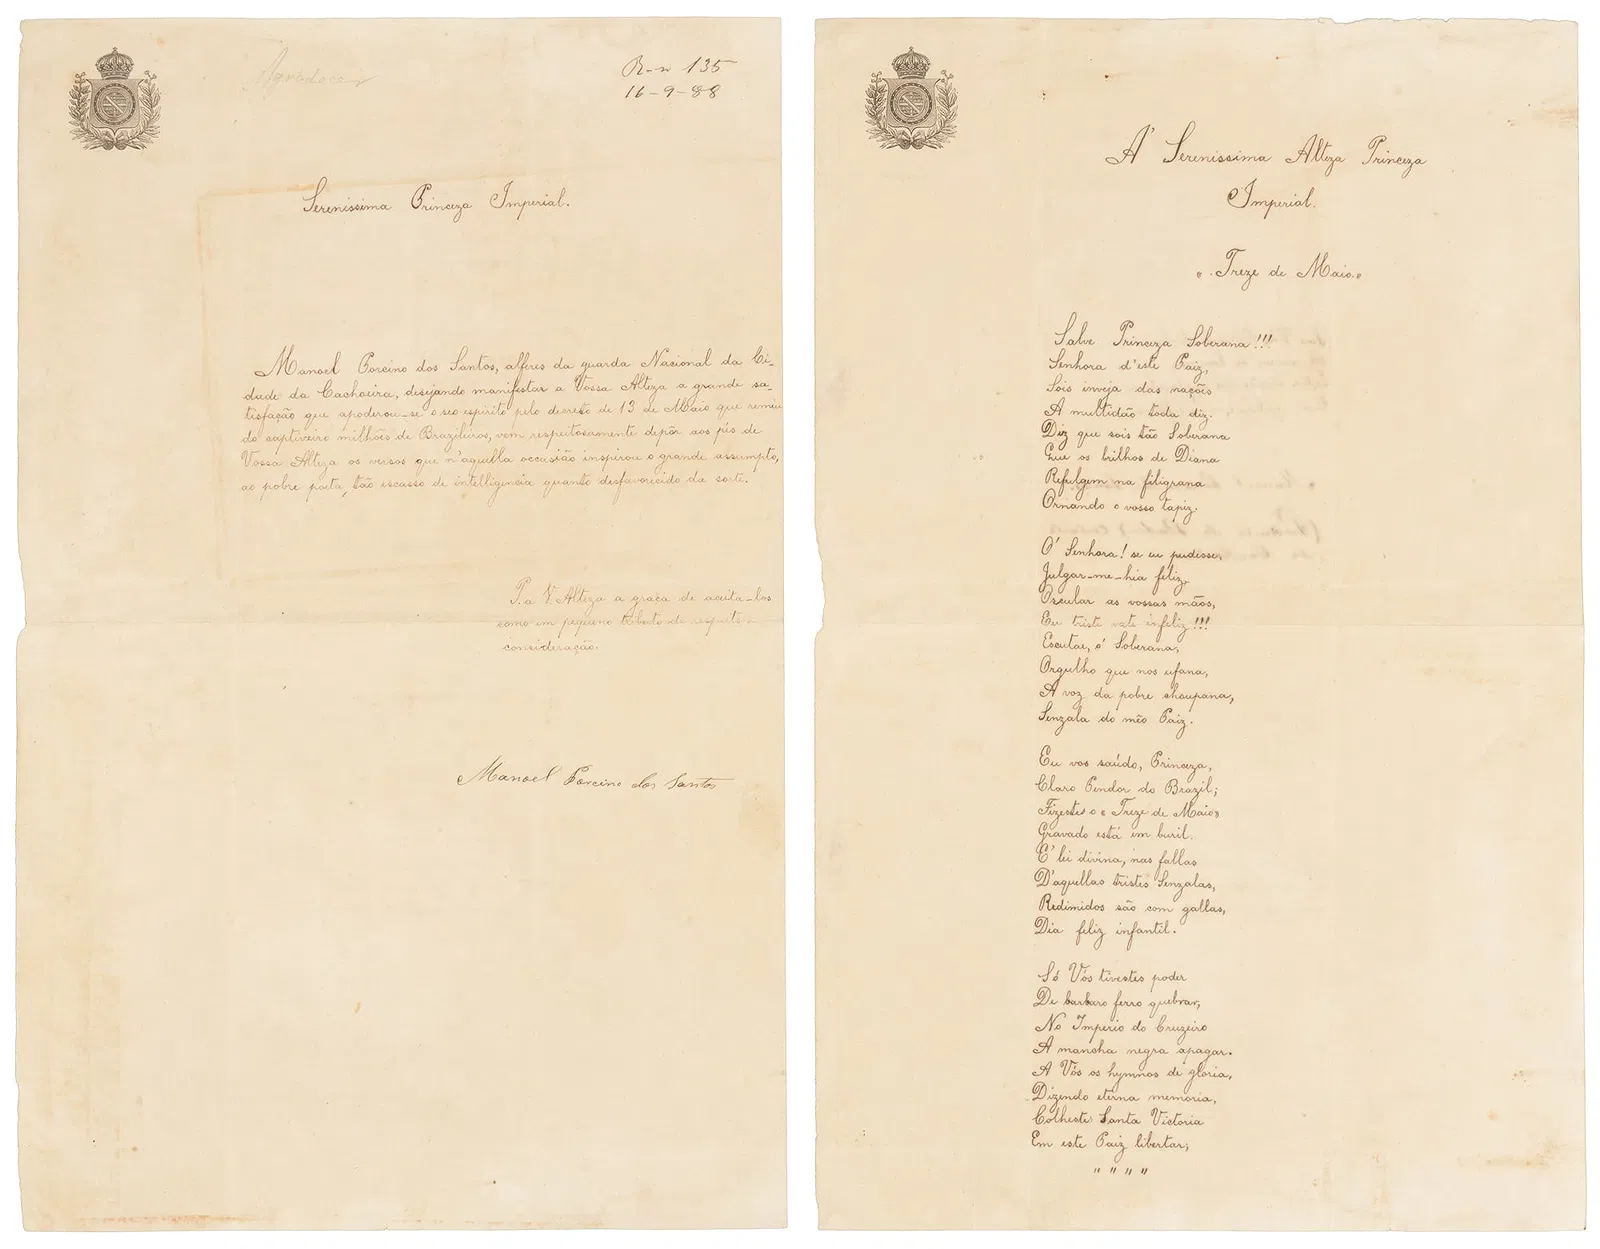 Agradecer
R-n 135
16-9-88
Serenissima Princeza Imperial.
Manoel Porcino dos Santos, alferes da guarda Nacional da Ci-
dade da Cachoeira, desejando manifestar a Vossa Alteza a grande sa-
tisfação que apoderou-se o seo espirito pelo decreto de 13 de Maio que remiu
do captiveiro milhões de Brazileiros, vem respeitosamente depôr aos pés de
Vossa Alteza os versos que n'aquella occasião inspirou o grande assumpto,
ao pobre poeta, tão escasso de intelligencia quanto desfavorecido da sorte.
P. a V. Alteza a graça de aceita-los
como um pequeno tributo de respeito e
consideração.
Manoel Porcino dos Santos
Á Serenissima Alteza Princeza
Imperial.
«Treze de Maio»
Salve Princeza Soberana!!!
Senhora d'este Paiz,
Sois inveja das nações
A multidão toda diz.
Diz que sois tão Soberana
Que os brilhos de Diana
Refulgem na filigrana
Ornando o vosso tapiz.
O' Senhora! se eu pudesse,
Julgar-me-hia feliz,
Oscular as vossas mãos,
Eu triste vate infeliz!!!
Escutae, ó Soberana,
Orgulho que nos ufana,
A voz da pobre choupana,
Senzala do mêo Paiz.
Eu vos saúdo, Princeza,
Claro Pendor do Brazil;
Fizestes o «Treze de Maio»
Gravado está em buril.
E' lei divina, nas fallas
D'aquellas tristes Senzalas,
Redimidos são com gallas,
Dia feliz infantil.
Só Vós tivestes poder
De barbaro ferro quebrar,
No Imperio do Cruzeiro
A mancha negra apagar.
A Vós os hymnos de gloria,
Dizendo eterna memoria,
Colheste Santa Victoria
Em este Paiz libertar;
" " " "